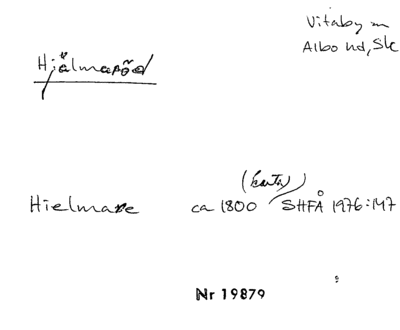 Vitaby sn
Albo hd, Sk
Hjälmaröd
Hielmare ca 1800 (karta) SHFÅ 1976:147
Nr 19879